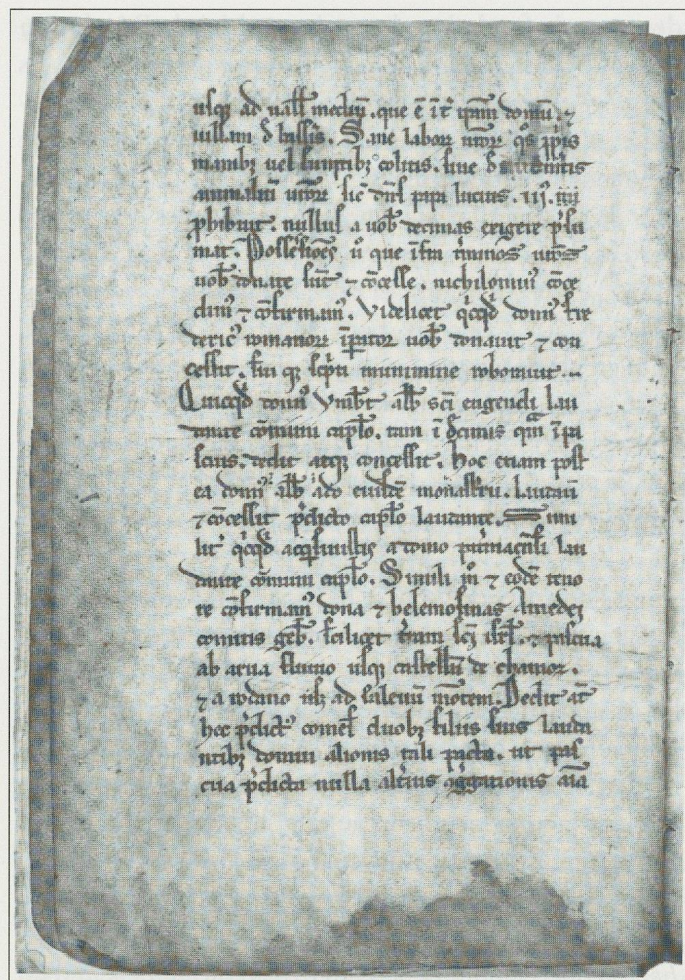 usq; ad uall̄ mediū. que ē īt̄ ip̄am domū. ⁊
uillam d̄ bullis. Sane laborū ur̄orū q̄s p̄p̄iis
manib; uel sumptib; colitis. siue d̄ nutm̄tis
animaliū ur̄orū sic̄ dn̄s papa lucius. iiiᵘˢ. uī
phibuit. nullus a uob̄ decimas exigere p̄su
mat. Possessiōes ū que īfra t̄minos ur̄os
uob̄ donate sūt ⁊ cōcesse. nichilominᵘ cōce
dimᵘ ⁊ cōfirmamᵘ. Videlicet q̄cq̄d domnᵘ fre
dericᵘ romanorū īp̄ator uob̄ donauit ⁊ con
cessit. suiq; sc̄pti munimine roborauit.
Quicq̄d domnᵘ Vmb̄t abb̄ sc̄i eugendi lau
dante cōmuni cap̄lo. tam ī decimis q̄m ī pa
scuis. dedit atq; concessit. hoc etiam post
ea domnᵘ abb̄ ado eiusdē monast̄ii. laudauit
⁊ cōcessit p̄dicto cap̄lo laudante. Simi
lit̄ q̄cq̄d acq̄siuistis a domo lau
dante cōmuni cap̄lo. Simili m̄ ⁊ eodē teno
re cōfirmamᵘ dona ⁊ helemosinas Amedei
comitis geb̄. scilicet t̄ram ⁊ pascua
ab arua fluuio usq; castellū de chamor.
⁊ a rodano usq; ad saleuū mōtem. Dedit aut̄
hec p̄dictᵘ comes duob; filiis suis lauda
ntib; domui alionis tali pacto. ut pas
cua p̄dicta nulla alt̄ius ɔḡgationis aīa